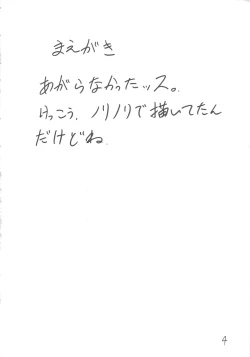 まえがき
あがらなかったッス。
けっこう、ノリノリで描いてたん
だけどね
4